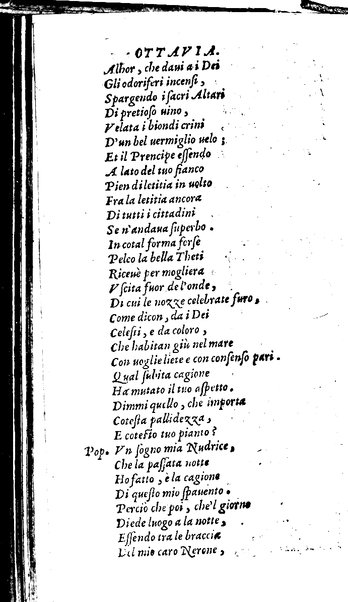 OTTAVIA.
Alhor, che daui a i Dei
Gli odoriferi incensi,
Spargendo i sacri Altari
Di pretioso uino,
Velata i biondi crini
D'un bel uermiglio uelo;
Et il Prencipe essendo
A lato del tuo fianco
Pien di letitia in uolto
Fra la letitia ancora
Di tutti i cittadini
Se n'andaua superbo.
In cotal forma forse
Peleo la bella Theti
Riceuè per mogliera
Vscita fuor de l'onde,
Di cui le nozze celebrate furo,
Come dicon, da i Dei
Celesti, e da coloro,
Che habitan giù nel mare
Con uoglie liete e con consenso pari.
Qual subita cagione
Ha mutato il tuo aspetto.
Dimmi quello, che importa
Cotesta pallidezza,
E cotesto tuo pianto?
Pop. Vn sogno mia Nudrice,
Che la passata notte
Ho fatto, è la cagione
Di questo mio spauento.
Perciò che poi, che'l giorno
Diede luogo a la notte,
Essendo tra le braccia
Del mio caro Nerone,